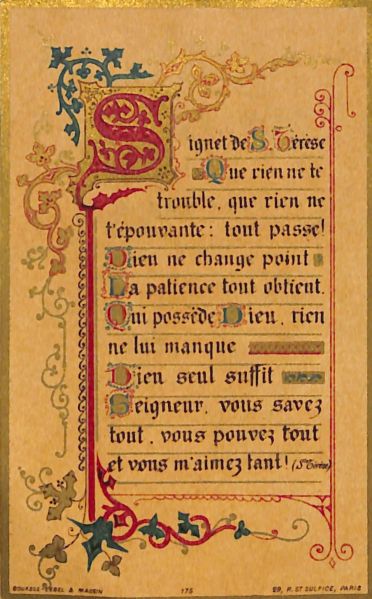 Signet de S. Térèse
Que rien ne te
trouble, que rien ne
t'épouvante: tout passe!
Dieu ne change point
La patience tout obtient.
Qui possède Dieu, rien
ne lui manque
Dieu seul suffit
Seigneur, vous savez
tout, vous pouvez tout
et vous m'aimez tant! (Ste Térèse)
BOUASSE-LEBEL & MASSIN 175 29, R. ST SULPICE, PARIS